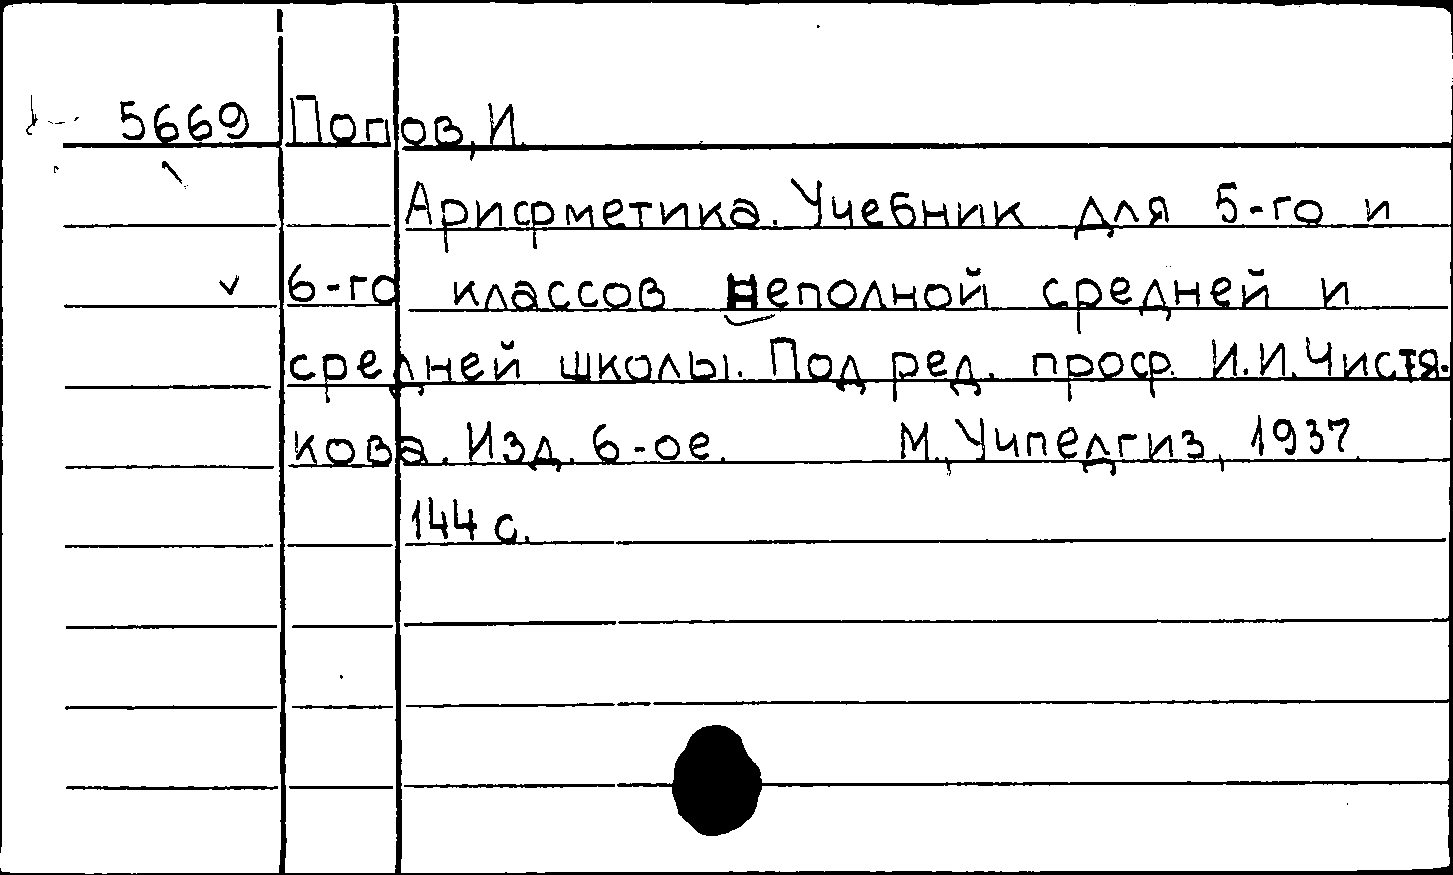 5669 Попов, И.
Арифметика. Учебник для 5-го и
6-го классов неполной средней и
средней школы. Под ред. проф. И.И.Чистя-
кова. Изд. 6-ое. М., Учпедгиз, 1937.
144 с.